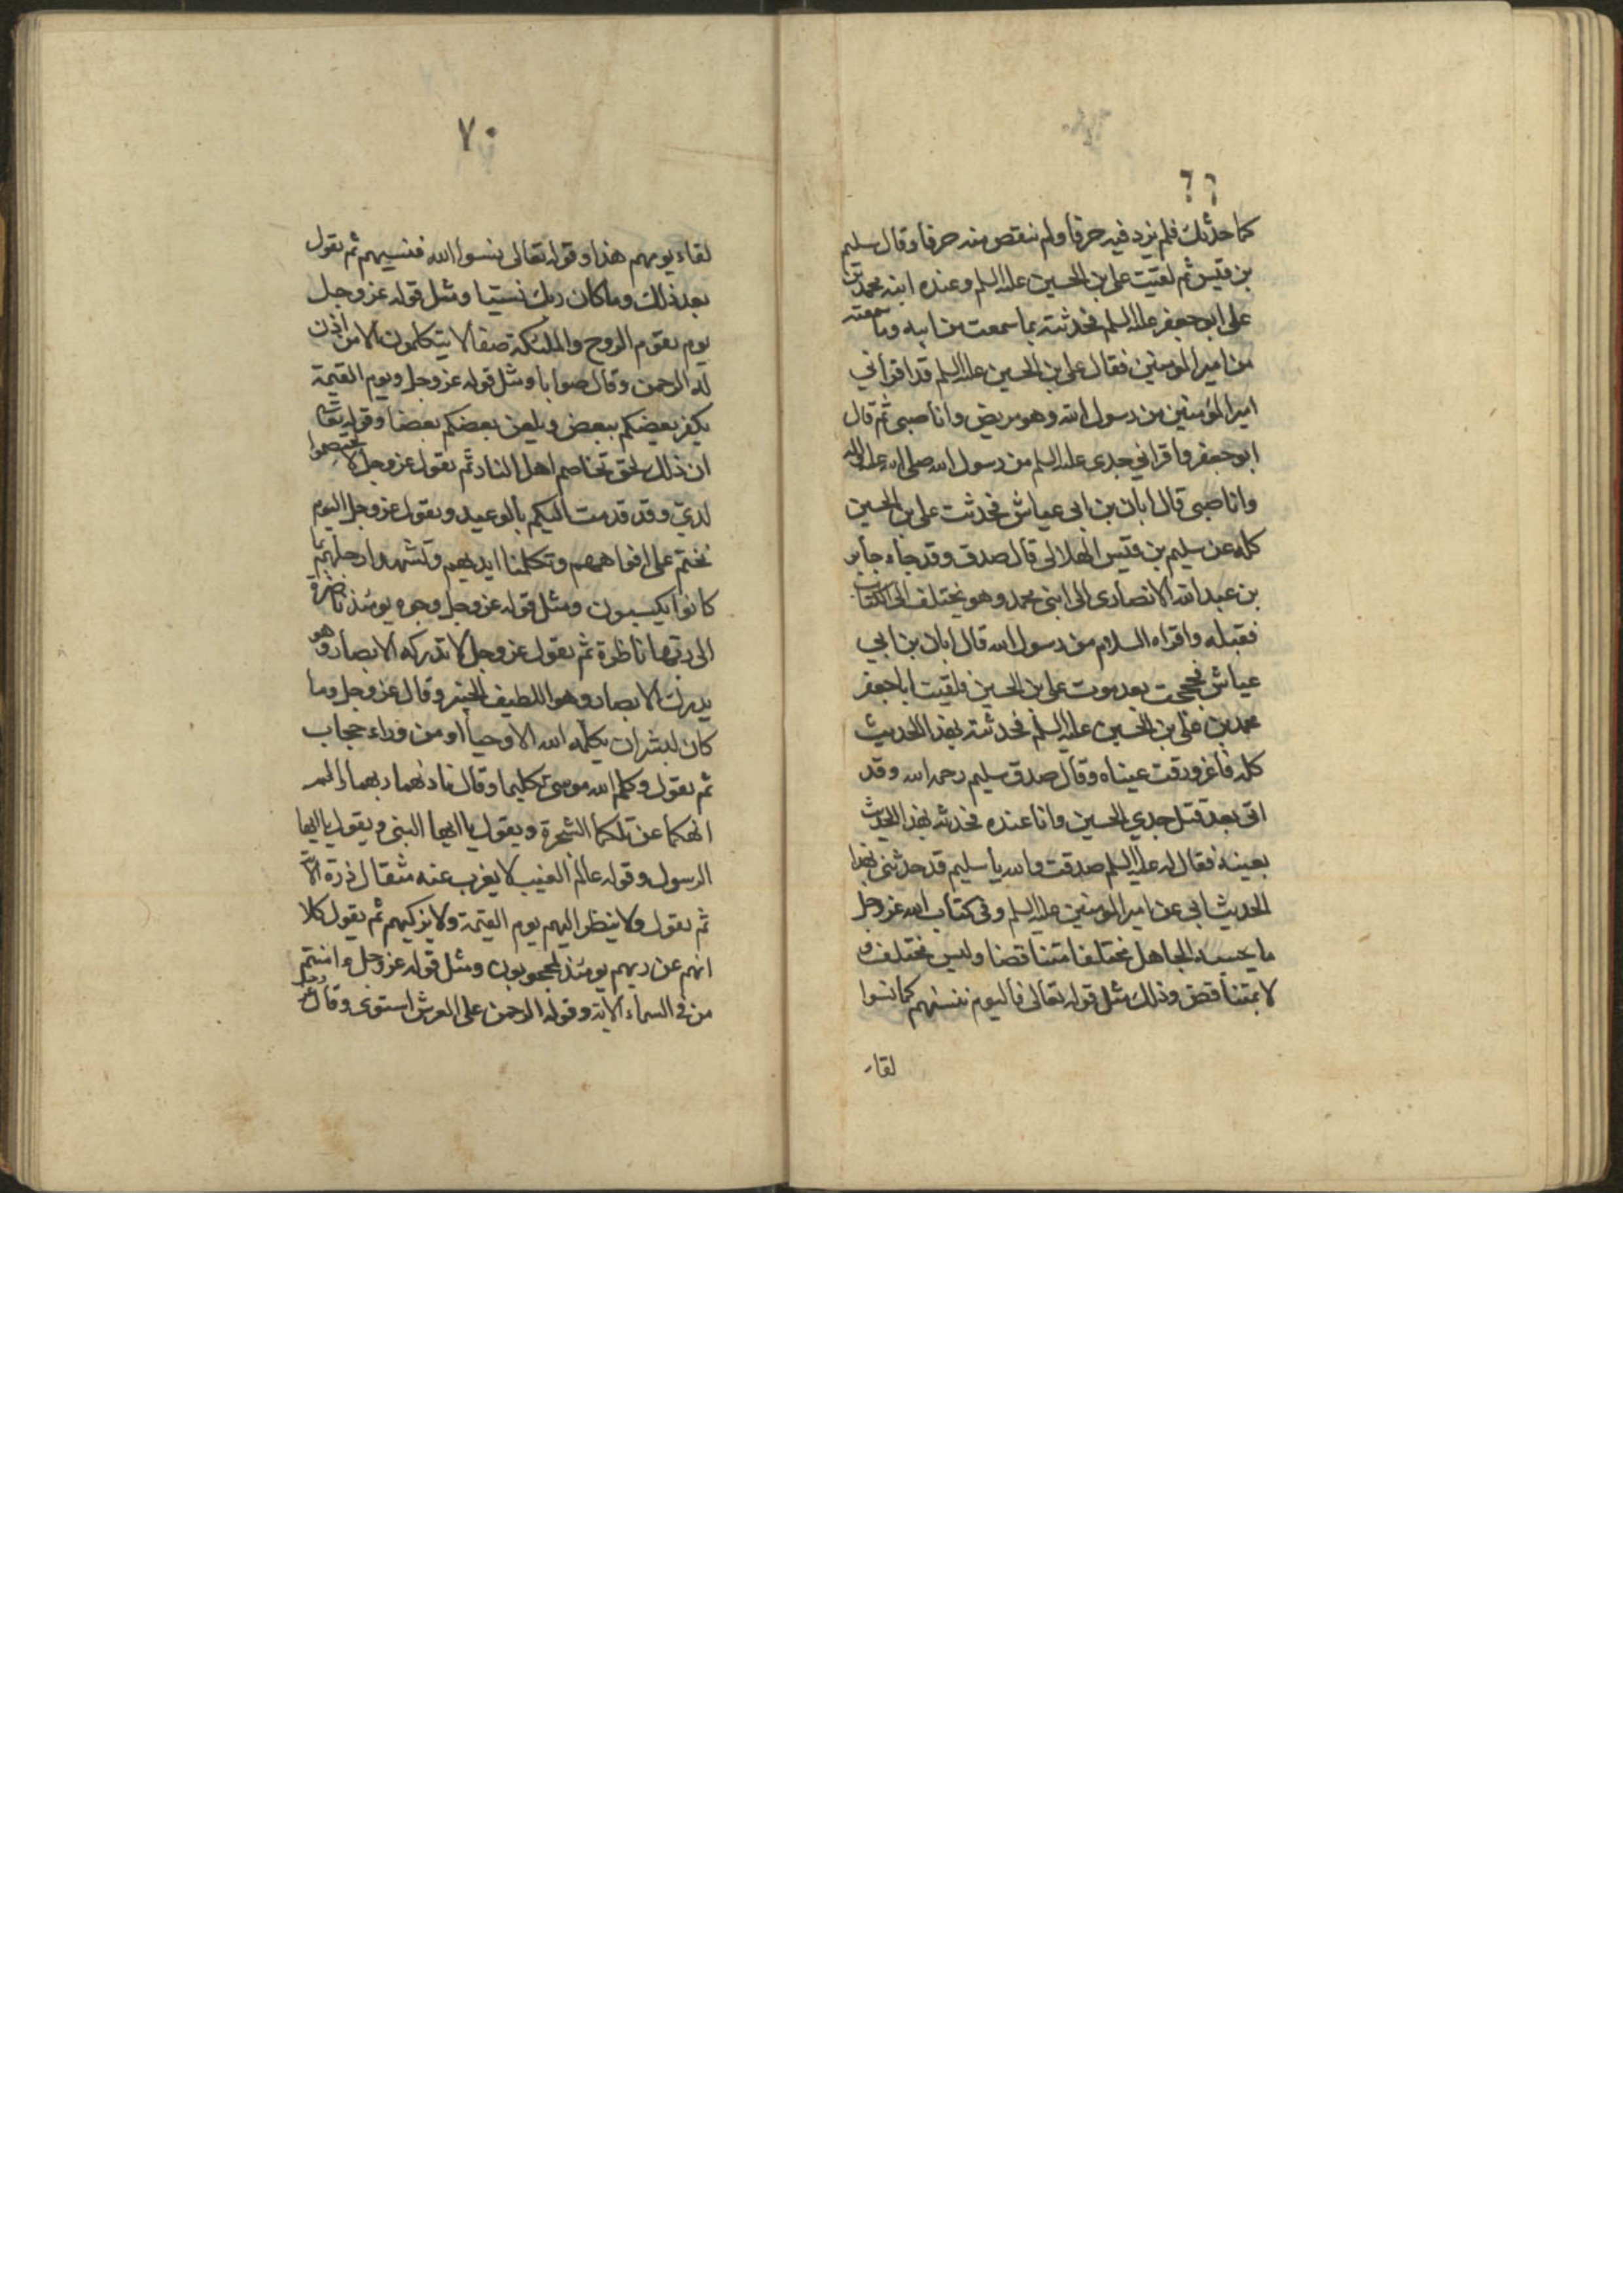 ٦٩
كما حدثك فلم يزد فيه حرفا ولم ينقص منه حرفا وقال سليم
بن قيس ثم لقيت على بن الحسين عليه السلم وعنده ابنه محمد بن
على ابو جعفر عليه السلم فحدثته بما سمعت من ابيه وما سمعته
من امير المؤمنين فقال على بن الحسين عليه السلم قد اقرأني
امير المؤمنين من رسول الله وهو مريض وانا صبى ثم قال
ابو جعفر واقرأني جدى عليه السلم من رسول الله صلى الله عليه واله
وانا صبى قال ابان بن ابى عياش فحدثت على بن الحسين
كله عن سليم بن قيس الهلالى قال صدق وقد جاء جابر
بن عبد الله الانصارى الى ابنى محمد وهو يختلف الى الكتاب
فقبله واقراه السلام من رسول الله قال ابان بن ابي
عياش فحججت بعد موت على بن الحسين فلقيت ابا جعفر
محمد بن على بن الحسين عليه السلم فحدثته بهذا الحديث
كله فاغرورقت عيناه وقال صدق سليم رحمه الله وقد
اتى بعد قتل جدي الحسين وانا عنده فحدثه بهذا الحديث
بعينه فقال له عليه السلم صدقت والله يا سليم قد حدثنى بهذا
الحديث ابى عن امير المؤمنين عليه السلم وفى كتاب الله عز وجل
ما يحسبه الجاهل مختلفا متناقضا وليس بمختلف و
لا بمتناقض وذلك مثل قوله تعالى فاليوم ننسيهم كما نسوا
لقاء
٧٠
لقاء يومهم هذا وقوله تعالى نسوا الله فنسيهم ثم يقول
بعد ذلك وما كان ربك نسيا ومثل قوله عز وجل
يوم يقوم الروح والملئكة صفا لا يتكلمون الا من اذن
له الرحمن وقال صوابا ومثل قوله عز وجل ويوم القيمة
يكفر بعضكم ببعض ويلعن بعضكم بعضا وقوله تعالى
ان ذلك لحق تخاصم اهل النار ثم يقول عز وجل لا تختصموا
لدي وقد قدمت اليكم بالوعيد ويقول عز وجل اليوم
نختم على افواههم وتكلمنا ايديهم وتشهد ارجلهم بما
كانوا يكسبون ومثل قوله عز وجل وجوه يومئذ ناضرة
الى ربها ناظرة ثم يقول عز وجل لا تدركه الابصار وهو
يدرك الابصار وهو اللطيف الخبير وقال عز وجل وما
كان لبشر ان يكلمه الله الا وحيا او من وراء حجاب
ثم يقول وكلم الله موسى تكليما وقال نادهما ربهما الم
انهكما عن تلكما الشجرة ويقول يا ايها النبى ويقول يا ايها
الرسول وقوله عالم الغيب لا يعزب عنه مثقال ذرة الآية
ثم يقول ولا ينظر اليهم يوم القيمة ولا يزكيهم ثم يقول كلا
انهم عن ربهم يومئذ لمحجوبون ومثل قوله عز وجل ءامنتم
من فى السماء الاية وقوله الرحمن على العرش استوى وقال عز وجل